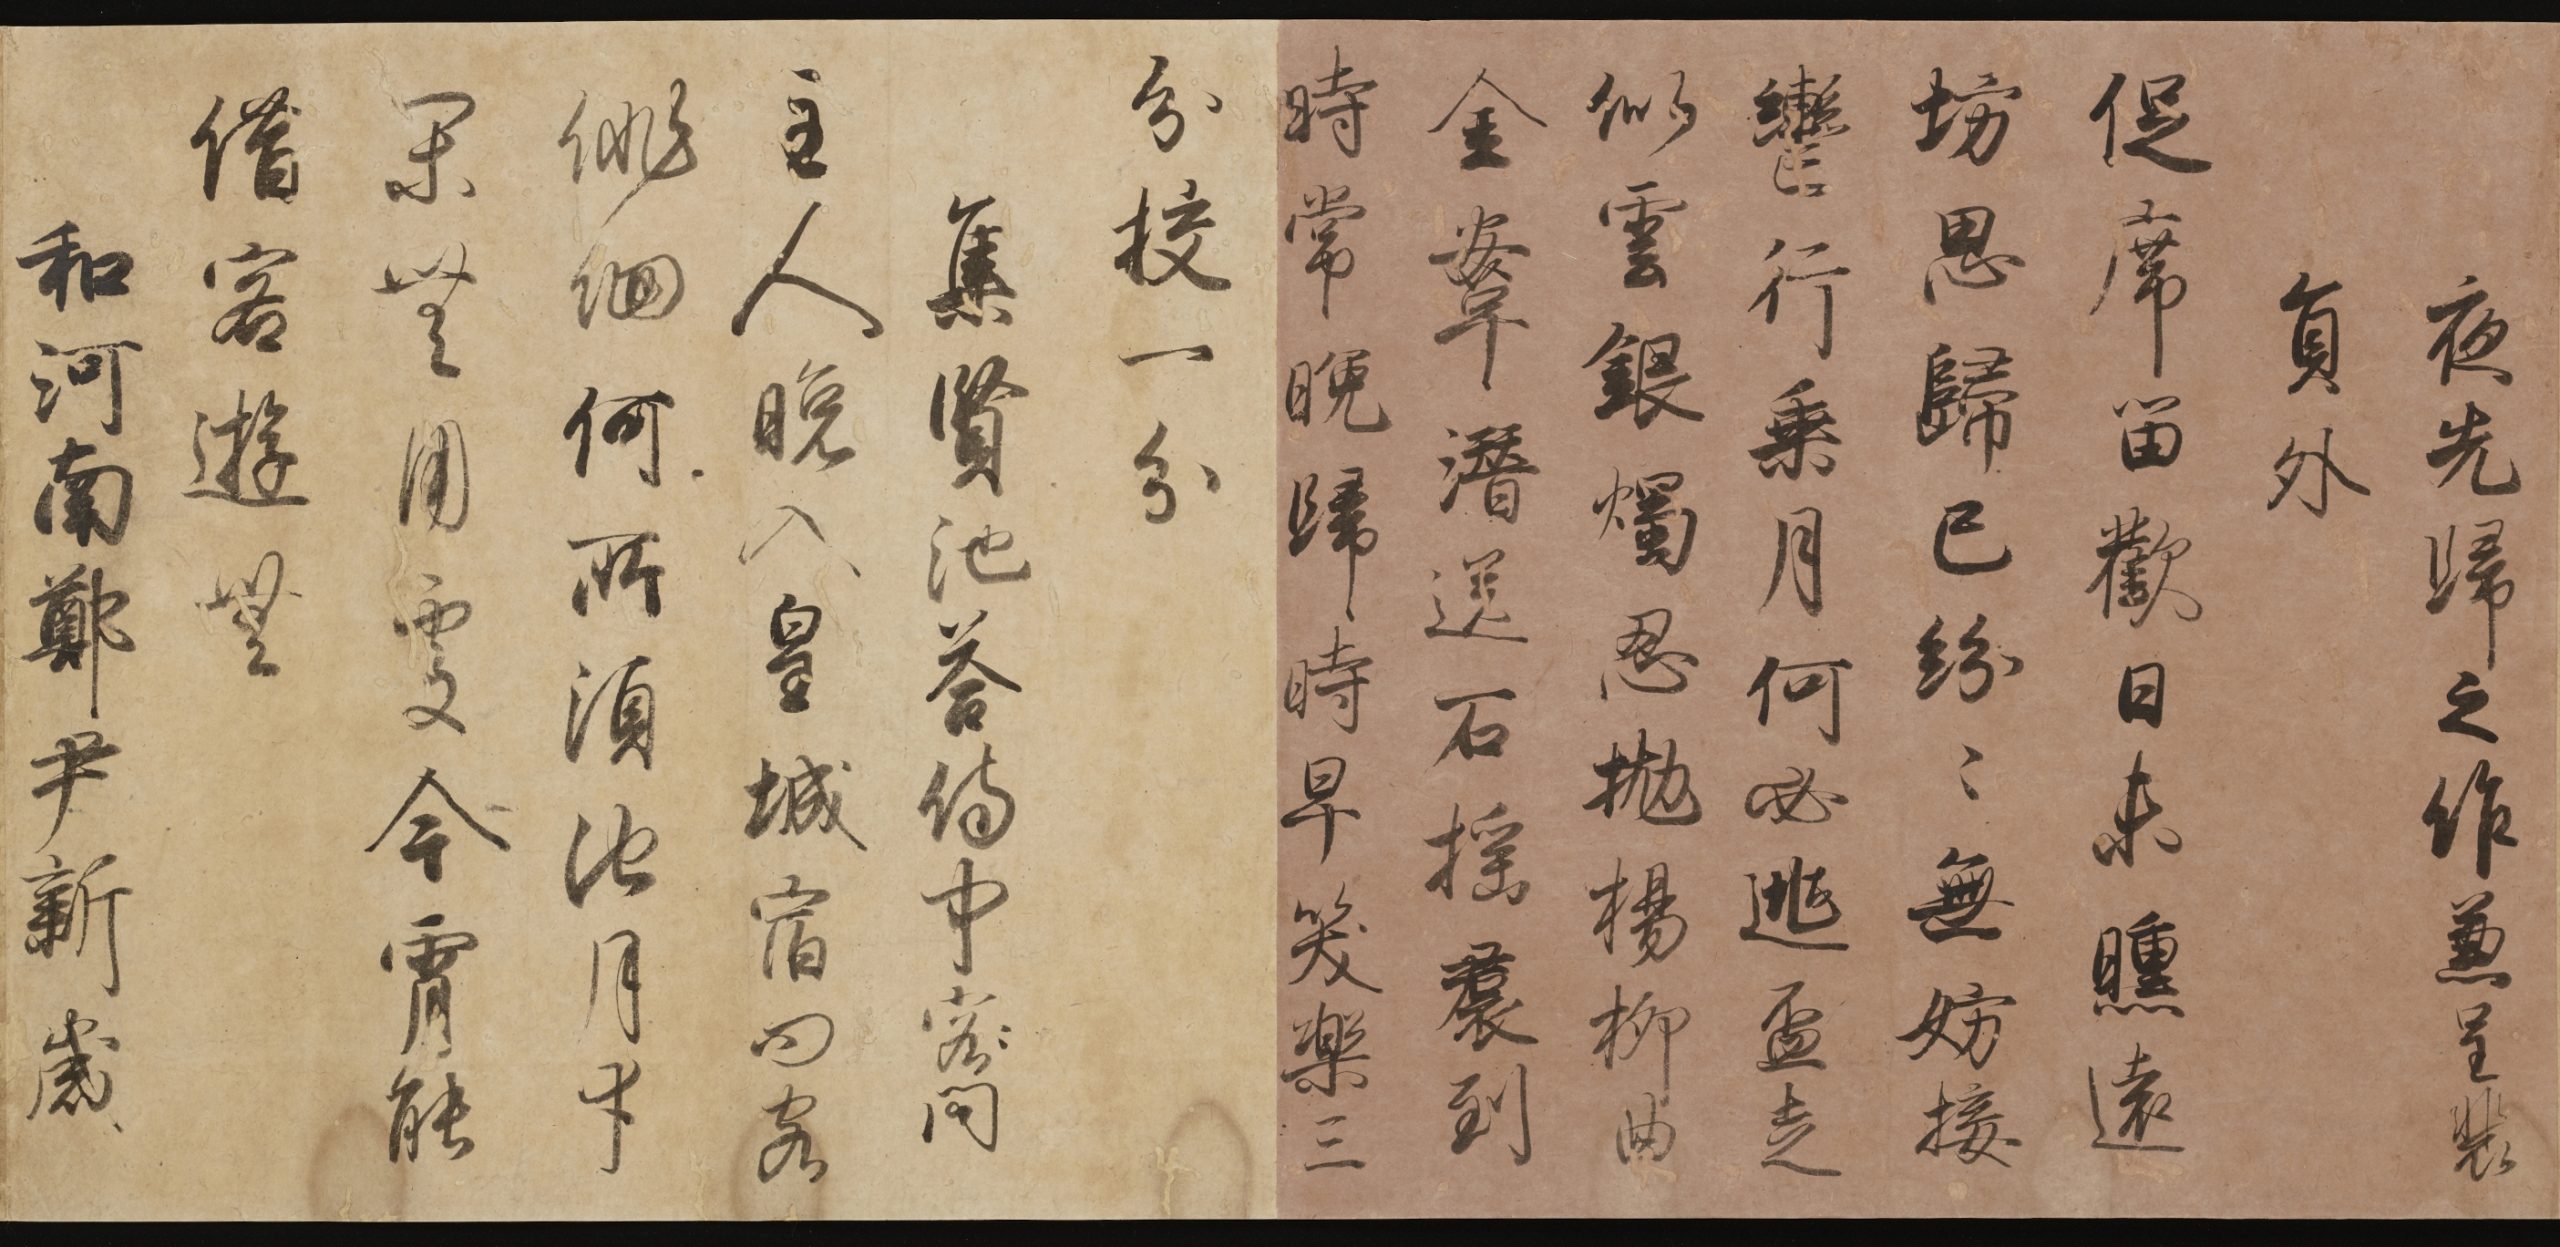 夜先歸之作兼呈裴
員外
促席留歡日未曛遠
坊思歸已紛〻無妨接
轡行乗月何必逃盃走
似雲銀燭忍抛楊柳曲
金鞌潜送石榴裠到
時常晚歸時早笑樂三
分校一分
集賢池荅侍中客〻問
主人晚入皇城宿問客
徘徊何所須池月幸
閑無用處今宵能
借客遊無
和河南鄭尹新歳